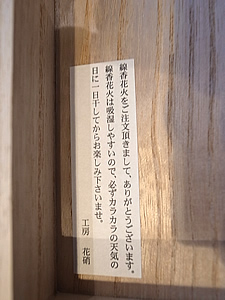 線香花火をご注文頂きまして、ありがとうございます。
線香花火は吸湿しやすいので、必ずカラカラの天気の
日に一日干してからお楽しみ下さいませ。
工房 花硝